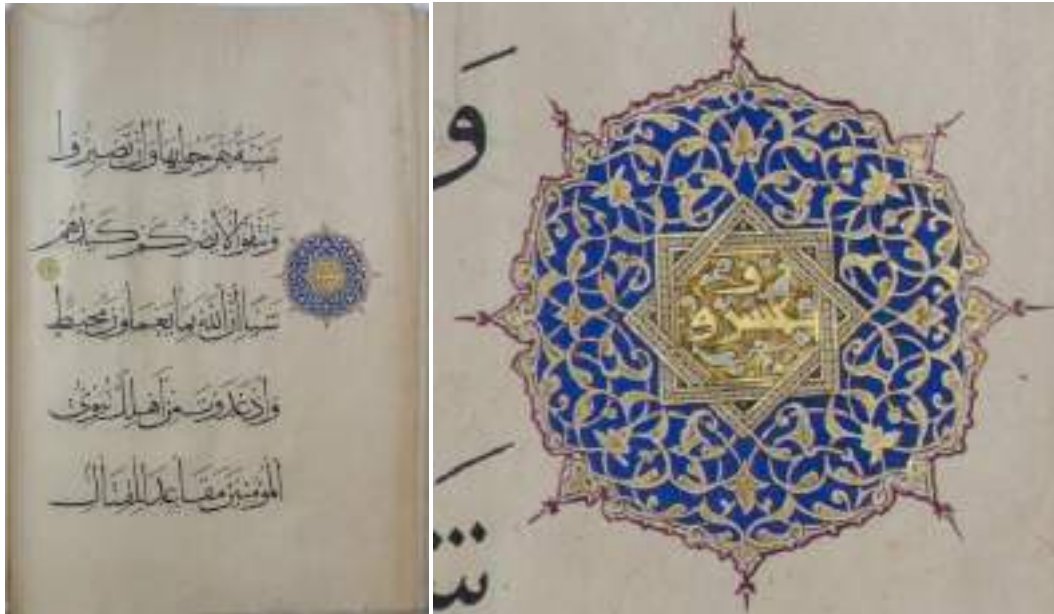 سيئة يفرحوا بها وان تصبروا
وتتقوا لا يضركم كيدهم
شيئا ان الله بما يعملون محيط
واذ غدوت من اهلك تبوئ
المؤمنين مقاعد للقتال